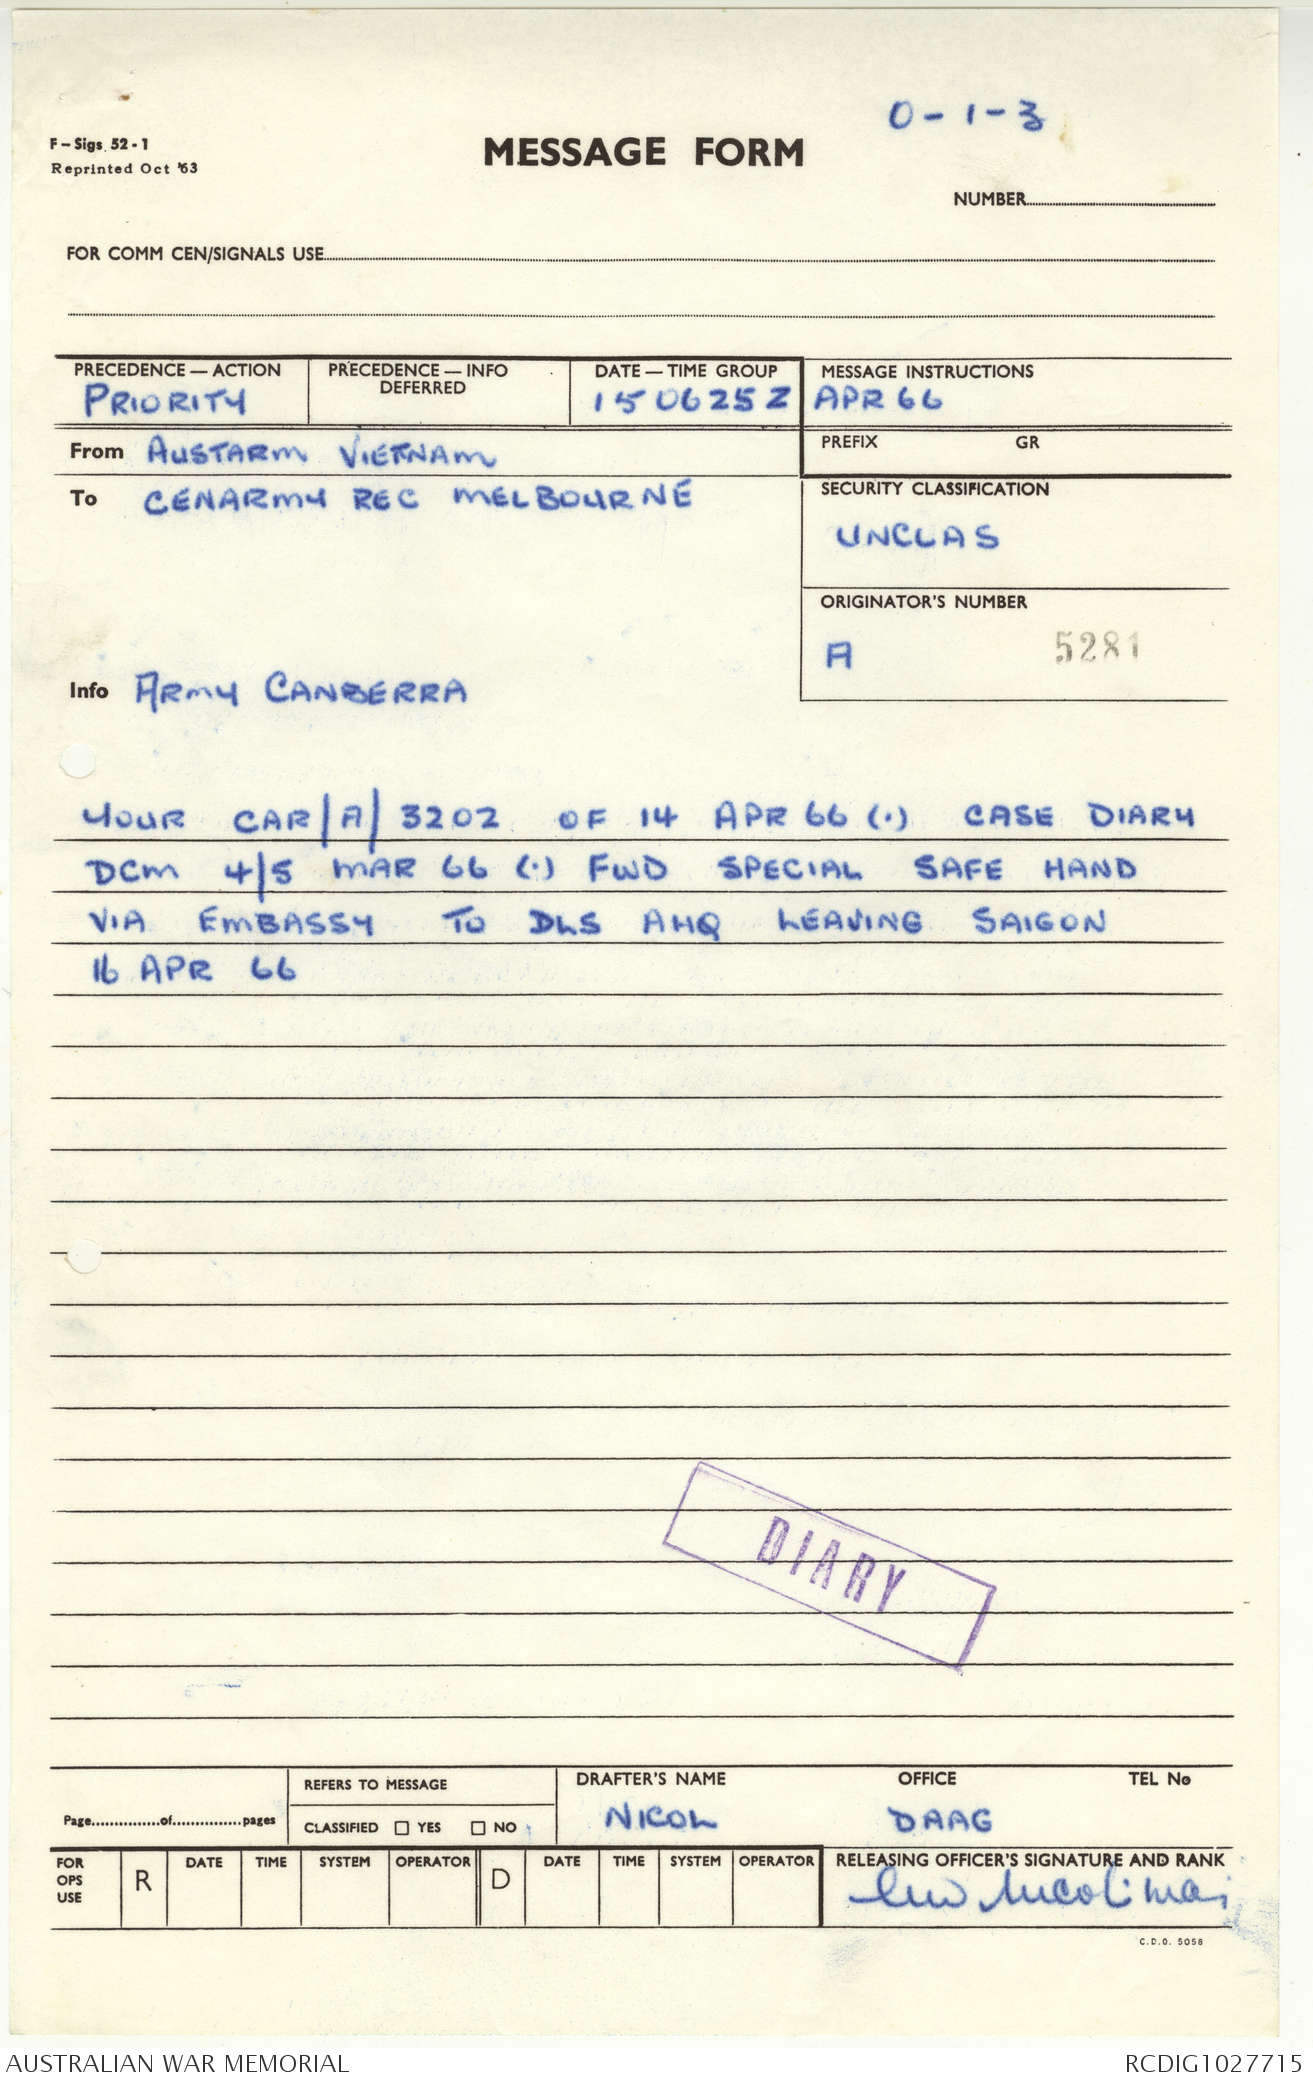 0-1-3
F - Sigs. 52 - 1
Reprinted Oct '63
MESSAGE FORM
NUMBER
FOR COMM CEN/SIGNALS USE
PRECEDENCE — ACTION
PRIORITY
PRECEDENCE — INFO
DEFERRED
DATE — TIME GROUP
150625Z
MESSAGE INSTRUCTIONS
APR 66
From AUSTARM VIETNAM
PREFIX GR
To CENARMY REC MELBOURNE
SECURITY CLASSIFICATION
UNCLAS
ORIGINATOR'S NUMBER
A 5281
Info ARMY CANBERRA
YOUR CAR/A/3202 OF 14 APR 66 (.) CASE DIARY
DCM 4/5 MAR 66 (.) FWD SPECIAL SAFE HAND
VIA EMBASSY TO DLS AHQ LEAVING SAIGON
16 APR 66
DIARY
Page...............of...............pages
REFERS TO MESSAGE
CLASSIFIED ☐ YES ☐ NO
DRAFTER'S NAME OFFICE TEL No
NICOL DAAG
FOR
OPS
USE
R DATE TIME SYSTEM OPERATOR D DATE TIME SYSTEM OPERATOR
RELEASING OFFICER'S SIGNATURE AND RANK
C.D.O. 5056
AUSTRALIAN WAR MEMORIAL RCDIG1027715